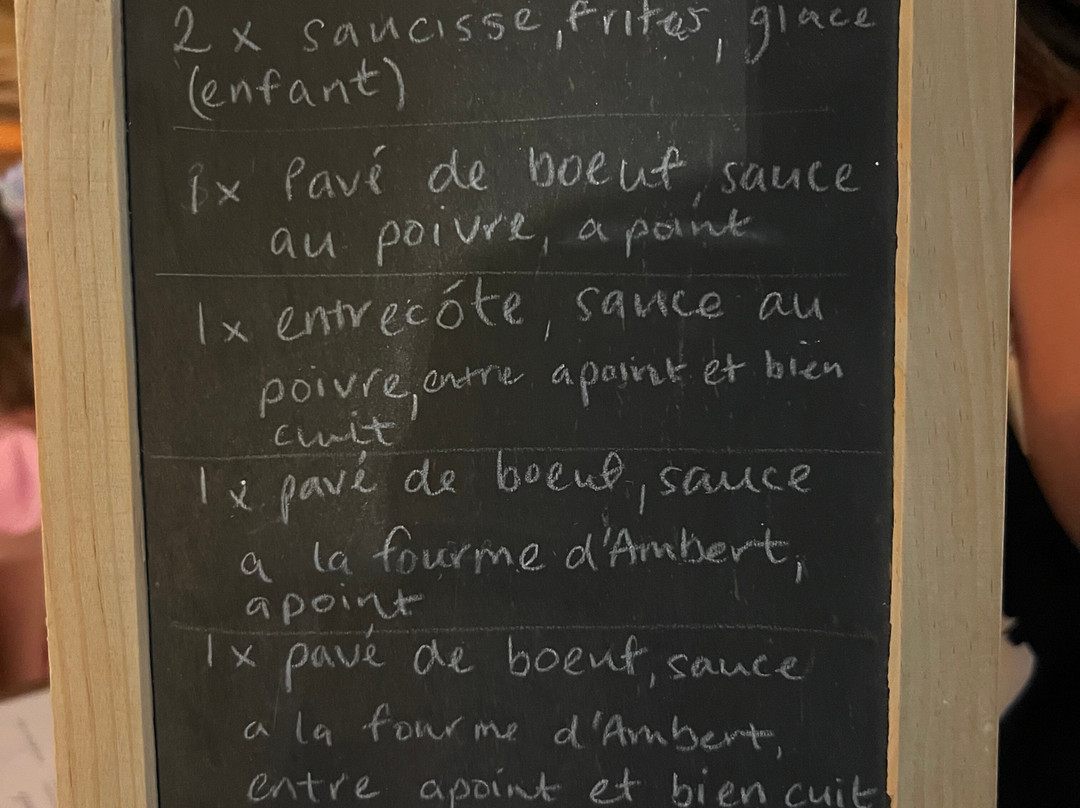 2 x saucisse, frites, glace
(enfant)
1x Pavé de boeuf, sauce
au poivre, a point
1x entrecóte, sauce au
poivre, entre apoint et bien
cuit
1x pavé de boeuf, sauce
a la fourme d'Ambert,
apoint
1x pavé de boeuf, sauce
a la fourme d'Ambert,
entre apoint et bien cuit